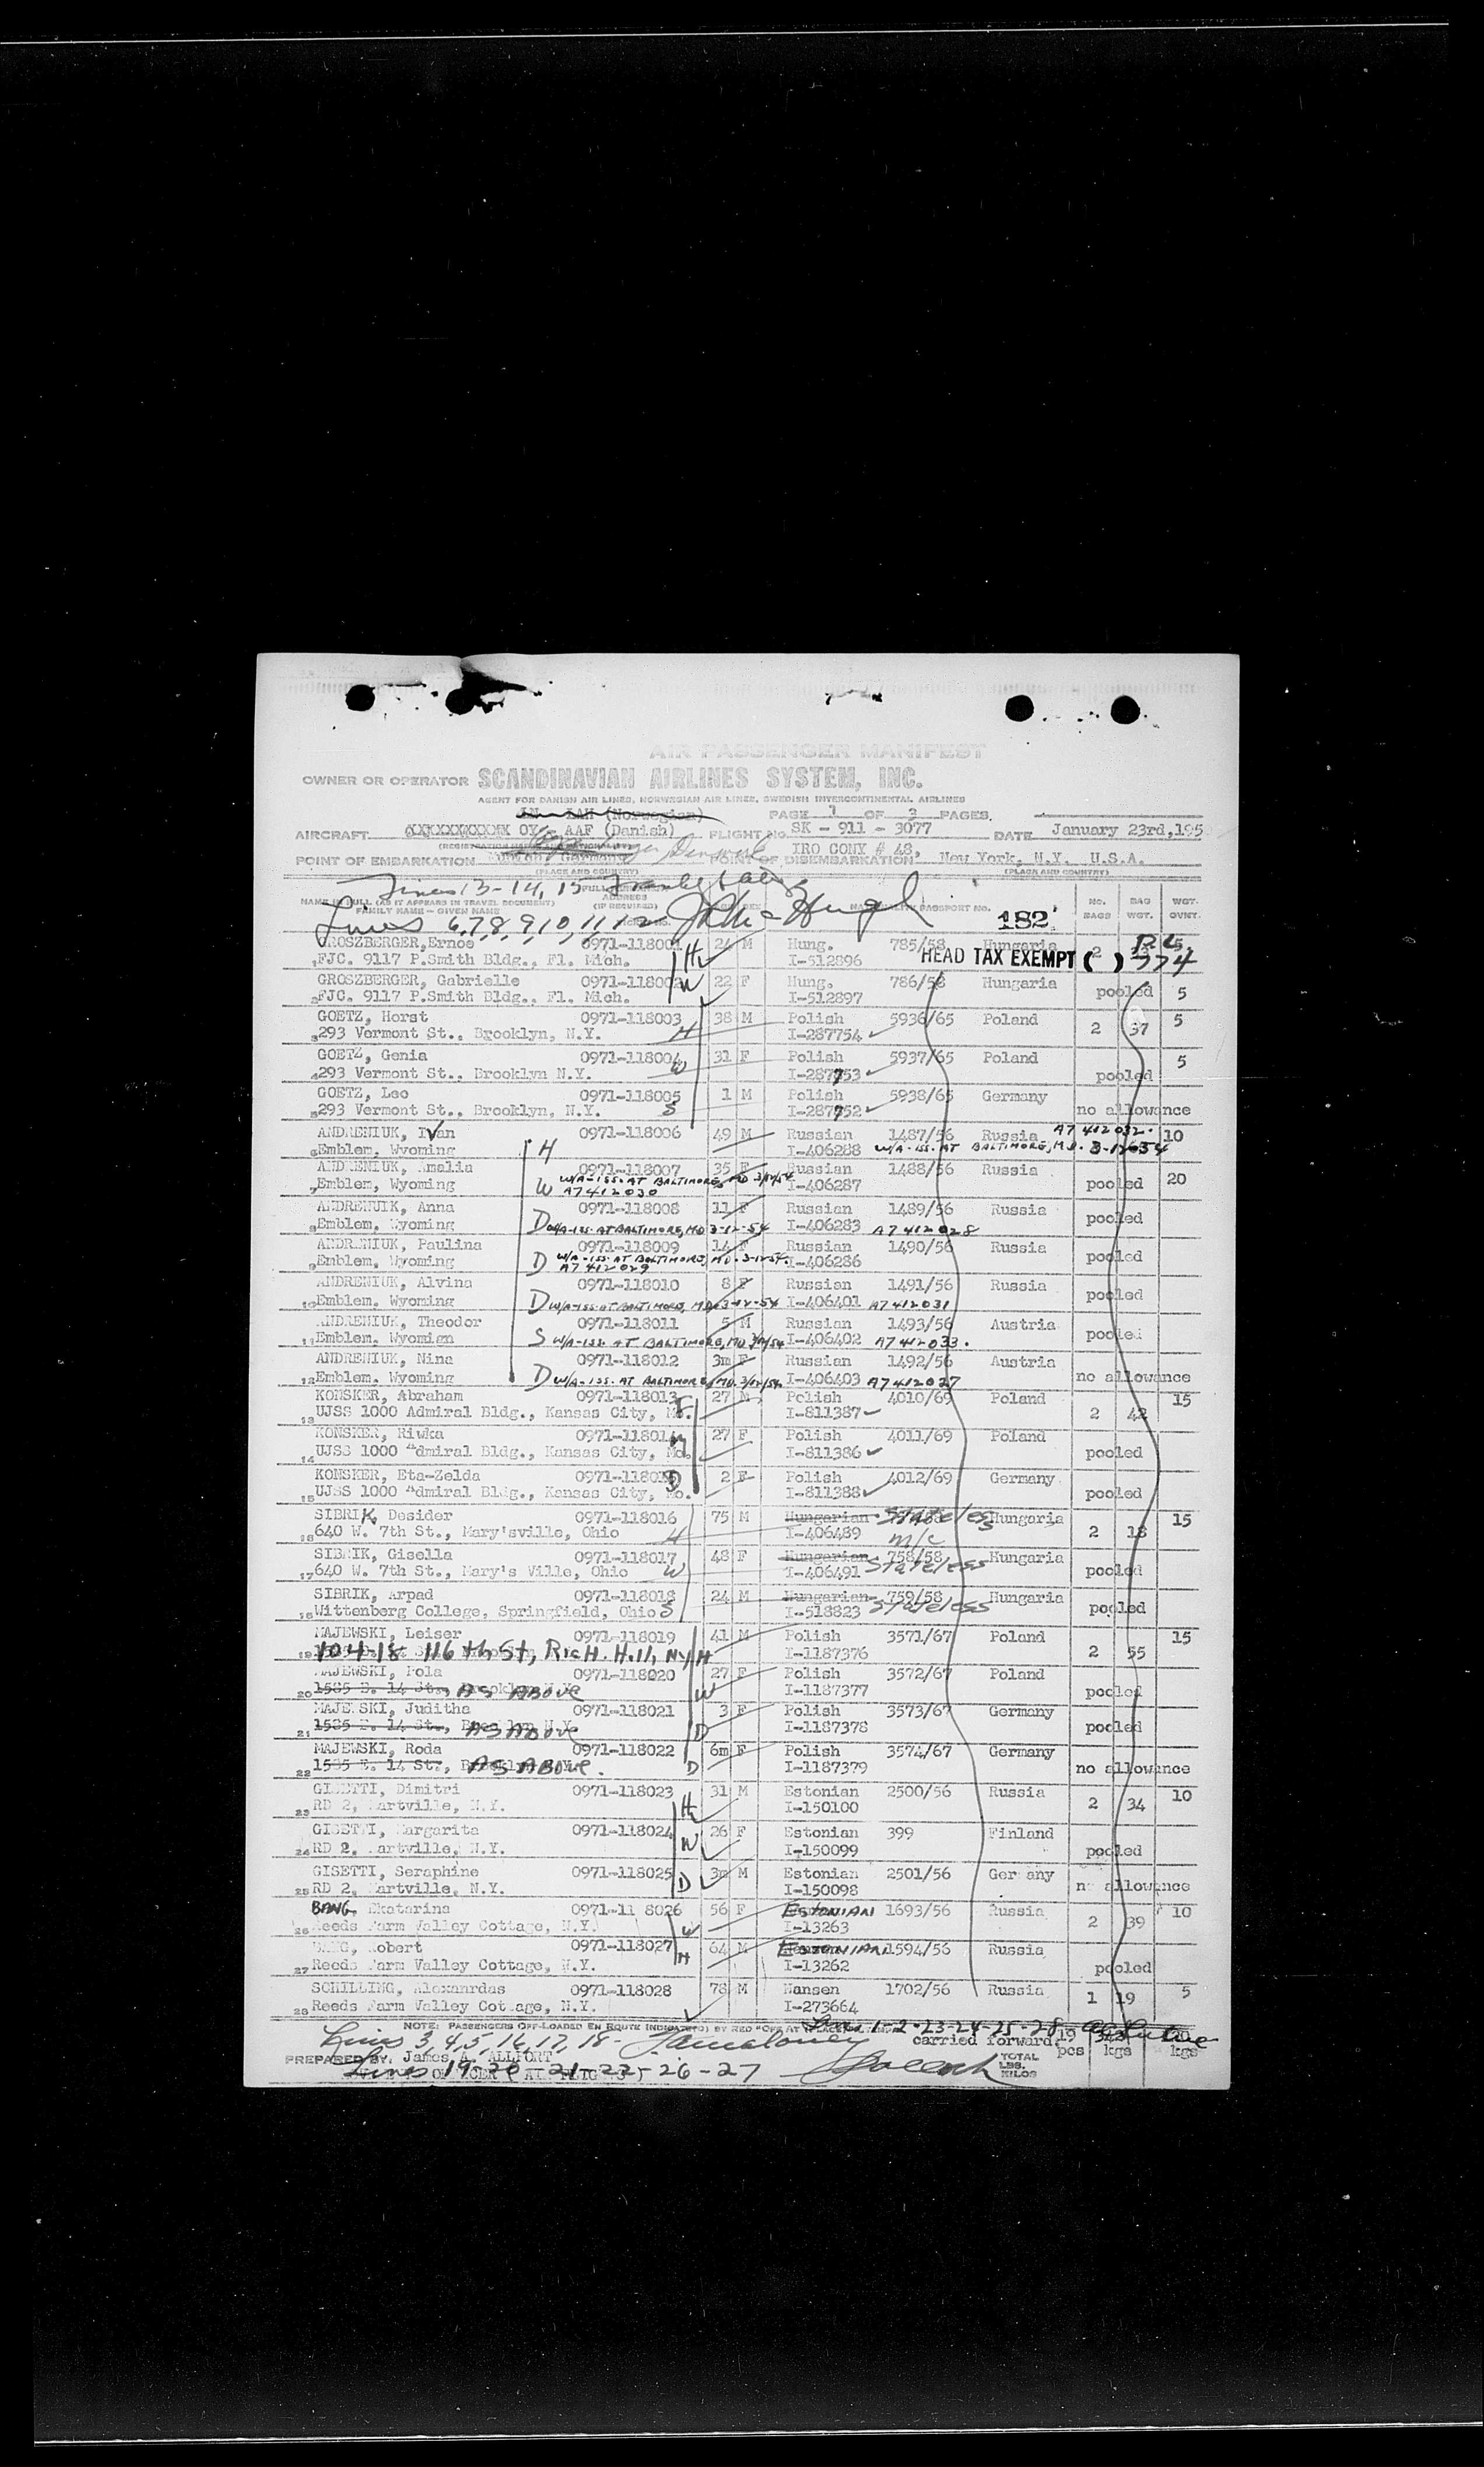 AIR PASSENGER MANIFEST
OWNER OR OPERATOR SCANDINAVIAN AIRLINES SYSTEM, INC.
AGENT FOR DANISH AIR LINES, NORWEGIAN AIR LINES, SWEDISH INTERCONTINENTAL AIRLINES
LN - LAH (Norwegian) PAGE 1 OF 3 PAGES.
AIRCRAFT OY - AAF (Danish) FLIGHT NO. SK - 911 - 3077 DATE January 23rd, 195
POINT OF EMBARKATION Munich, Germany POINT OF DISEMBARKATION IRO CONY # 48, New York, N.Y. U.S.A.
(PLACE AND COUNTRY) (PLACE AND COUNTRY)
Lines 13-14, 15
NAME IN FULL (AS IT APPEARS IN TRAVEL DOCUMENT) ADDRESS (IF REQUIRED) PASSPORT NO. NO. BAGS BAG WGT. WGT. OVNT.
FAMILY NAME - GIVEN NAME
Lines 6,7,8,9,10,11,12 182
GROSZBERGER, Ernoe 0971-118001 24 M Hung. 785/58 Hungaria 2 5
1 FJC. 9117 P.Smith Bldg., Fl. Mich. H I-512896 HEAD TAX EXEMPT ( ) 774
GROSZBERGER, Gabrielle 0971-118002 W 22 F Hung. 786/58 Hungaria pooled 5
2 FJC. 9117 P.Smith Bldg., Fl. Mich. I-512897
GOETZ, Horst 0971-118003 38 M Polish 5936/65 Poland 2 37 5
3 293 Vermont St., Brooklyn, N.Y. H I-287754
GOETZ, Genia 0971-118004 31 F Polish 5937/65 Poland pooled 5
4 293 Vermont St., Brooklyn N.Y. W I-287753
GOETZ, Leo 0971-118005 1 M Polish 5938/65 Germany
5 293 Vermont St., Brooklyn, N.Y. S I-287752 no allowance
ANDRENIUK, Ivan 0971-118006 49 M Russian 1487/56 Russia A7 412032. 10
6 Emblem, Wyoming H I-406288 W/A-ISS. AT BALTIMORE, MD. 3-12-54
ANDRENIUK, Amalia 0971-118007 35 F Russian 1488/56 Russia pooled 20
7 Emblem, Wyoming W W/A-ISS. AT BALTIMORE, MD 3/12/54 A7412030 I-406287
ANDRENUIK, Anna 0971-118008 11 F Russian 1489/56 Russia pooled
8 Emblem, Wyoming D W/A-ISS. AT BALTIMORE, MD 3-12-54 I-406283 A7412028
ANDRENIUK, Paulina 0971-118009 14 F Russian 1490/56 Russia pooled
9 Emblem, Wyoming D W/A-ISS. AT BALTIMORE, MD. 3-12-54. A7412029 I-406286
ANDRENIUK, Alvina 0971-118010 8 F Russian 1491/56 Russia pooled
10 Emblem, Wyoming D W/A-ISS. AT BALTIMORE, MD. 3-12-54 I-406401 A7412031
ANDRENIUK, Theodor 0971-118011 5 M Russian 1493/56 Austria pooled
11 Emblem, Wyomign S W/A-ISS. AT BALTIMORE, MD 3/12/54 I-406402 A7412033.
ANDRENIUK, Nina 0971-118012 3m F Russian 1492/56 Austria
12 Emblem, Wyoming D W/A-ISS. AT BALTIMORE, MD. 3/12/54 I-406403 A7412027 no allowance
KONSKER, Abraham 0971-118013 27 M Polish 4010/69 Poland 2 42 15
13 UJSS 1000 Admiral Bldg., Kansas City, Mo. I-811387
KONSKER, Riwka 0971-118014 27 F Polish 4011/69 Poland
14 UJSS 1000 Admiral Bldg., Kansas City, Mo. I-811386 pooled
KONSKER, Eta-Zelda 0971-118015 D 2 F Polish 4012/69 Germany
15 UJSS 1000 Admiral Bldg., Kansas City, Mo. I-811388 pooled
SIBRIK, Desider 0971-118016 75 M Hungarian Stateless Hungaria 2 18 15
16 640 W. 7th St., Mary'sville, Ohio H I-406489 m/c
SIBRIK, Gisella 0971-118017 48 F Hungarian 758/58 Hungaria
17 640 W. 7th St., Mary's Ville, Ohio W I-406491 Stateless pooled
SIBRIK, Arpad 0971-118018 24 M Hungarian 759/58 Hungaria
18 Wittenberg College, Springfield, Ohio S I-518823 Stateless pooled
MAJEWSKI, Leiser 0971-118019 41 M Polish 3571/67 Poland 2 55 15
19 104-18 116th St, Rich. Hill, N.Y H I-1187376
MAJEWSKI, Pola 0971-118020 27 F Polish 3572/67 Poland
20 1585 E. 14 St., Brooklyn AS ABOVE W I-1187377 pooled
MAJEWSKI, Juditha 0971-118021 3 F Polish 3573/67 Germany
21 1585 E. 14 St., Brooklyn N.Y. AS ABOVE D I-1187378 pooled
MAJEWSKI, Roda 0971-118022 6m F Polish 3574/67 Germany
22 1585 E. 14 St., AS ABOVE. D I-1187379 no allowance
GISETTI, Dimitri 0971-118023 31 M Estonian 2500/56 Russia 2 34 10
23 RD 2, Martville, N.Y. H I-150100
GISETTI, Margarita 0971-118024 26 F Estonian 399 Finland
24 RD 2. Martville, N.Y. W I-150099 pooled
GISETTI, Seraphine 0971-118025 3m M Estonian 2501/56 Germany
25 RD 2, Martville, N.Y. D I-150098 no allowance
BANG, Ekatarina 0971-11 8026 56 F ESTONIAN 1693/56 Russia 2 39 10
26 Reeds Farm Valley Cottage, N.Y. W I-13263
BANG, Robert 0971-118027 64 M ESTONIAN 1594/56 Russia
27 Reeds Farm Valley Cottage, N.Y. H I-13262 pooled
SCHILLING, Alexanrdas 0971-118028 78 M Nansen 1702/56 Russia 1 19 5
28 Reeds Farm Valley Cottage, N.Y. I-273664
NOTE: PASSENGERS OFF-LOADED EN ROUTE INDICATED BY RED "OFF AT (PLACE)" Lines 1-2-23-24-25-28
Lines 3,4,5,16,17,18 - carried forward 19 pcs kgs kgs
PREPARED BY: James A. ALLFORT TOTAL LBS. KILOS
Lines 19-20-21-22-26-27